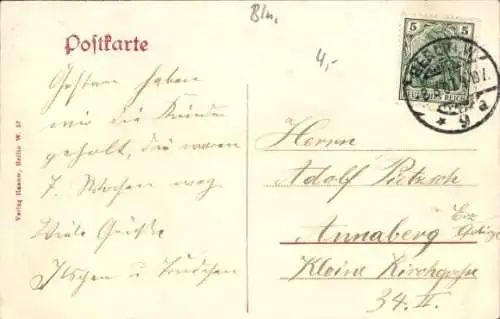 Bln.
4,-
Postkarte
5 5
DEUTSCHES REICH
BERLIN W.
* 9 a
Gestern haben
wir die Kinder
geholt, die waren
7 Wochen weg.
Viele Grüße
Ilschen u Trudchen
Herrn
Adolf Pietzsch
Annaberg Erz
Gebirge
Kleine Kirchgasse
34. II.
Verlag Hanow, Berlin W. 57